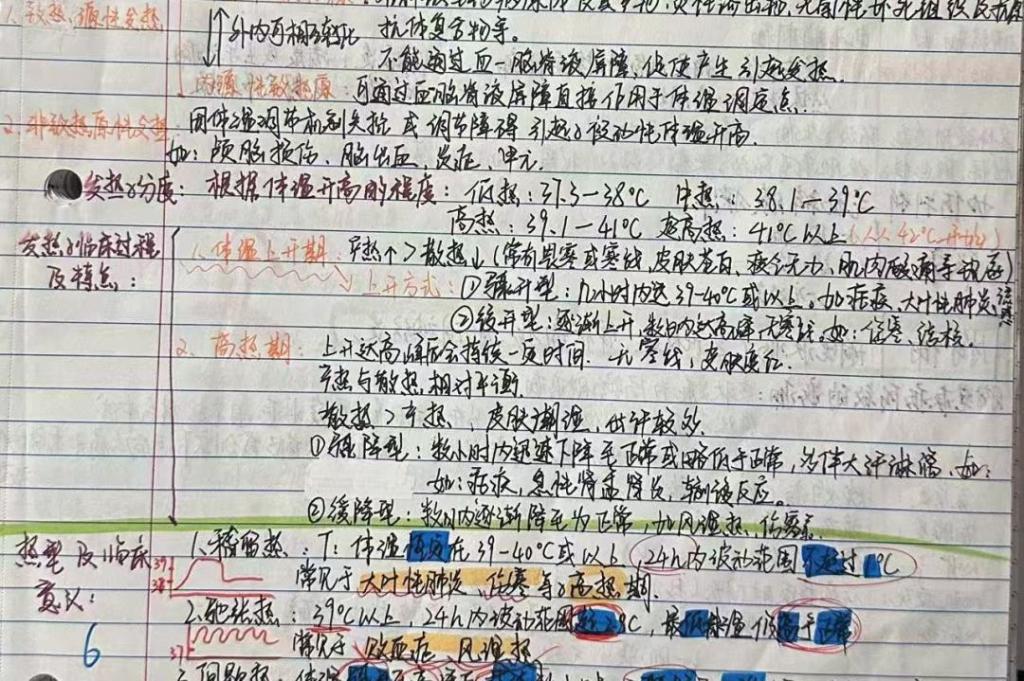 1. 致热源性发热
外内可相互转化 抗体复合物等。
不能通过血-脑脊液屏障，促使产生引起发热.
内源性致热原：可通过血脑脊液屏障直接作用于体温调定点.
2. 非致热原性发热 因体温调节机制失控 或调节障碍 引起被动性体温升高.
如：颅脑损伤、脑出血、炎症、甲亢.
发热分度：根据体温升高的程度：低热：37.3—38℃ 中热：38.1—39℃
高热：39.1—41℃ 超高热：41℃以上
发热临床过程及特点：
1. 体温上升期：产热↑>散热↓(常有畏寒或寒战、皮肤苍白、疲乏无力、肌肉酸痛等
上升方式：①骤升型：几小时内达39-40℃或以上。如疟疾、大叶性肺炎
②缓升型：逐渐上升，数日内达高峰，无寒战。如：伤寒、结核.
2. 高热期：上升达高峰后会持续一段时间. 无寒战，皮肤
产热与散热相对平衡.
散热>产热，皮肤潮湿，出汗较多.
①骤降型：数小时内迅速下降至正常或略低于正常，伴大汗淋漓. 如：
如：疟疾，急性肾盂肾炎，输液反应。
②缓降型：数日内逐渐降至为正常，如风湿热、伤寒
热型及临床意义：
1. 稽留热：T：体温恒定在39-40℃或以上 24h内波动范围不超过1℃
39 38 常见于大叶性肺炎、伤寒等高热期.
2. 弛张热：39℃以上，24h内波动范围超2℃，最低体温仍高于正常
37 常见于 败血症、风湿热
6
3. 间歇热：体温